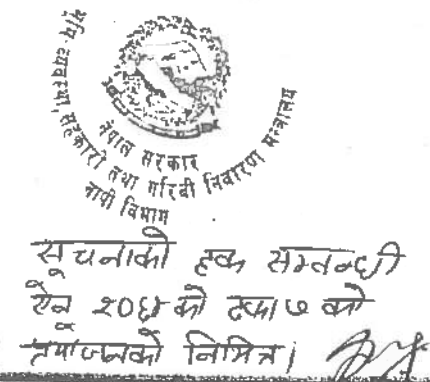 नेपाल सरकार
भूमि व्यवस्था, सहकारी तथा गरिबी निवारण मन्त्रालय
नापी विभाग
सूचनाको हक सम्बन्धी
ऐन २०६४ को दफा ७ को
प्रयोजनको निमित्त।